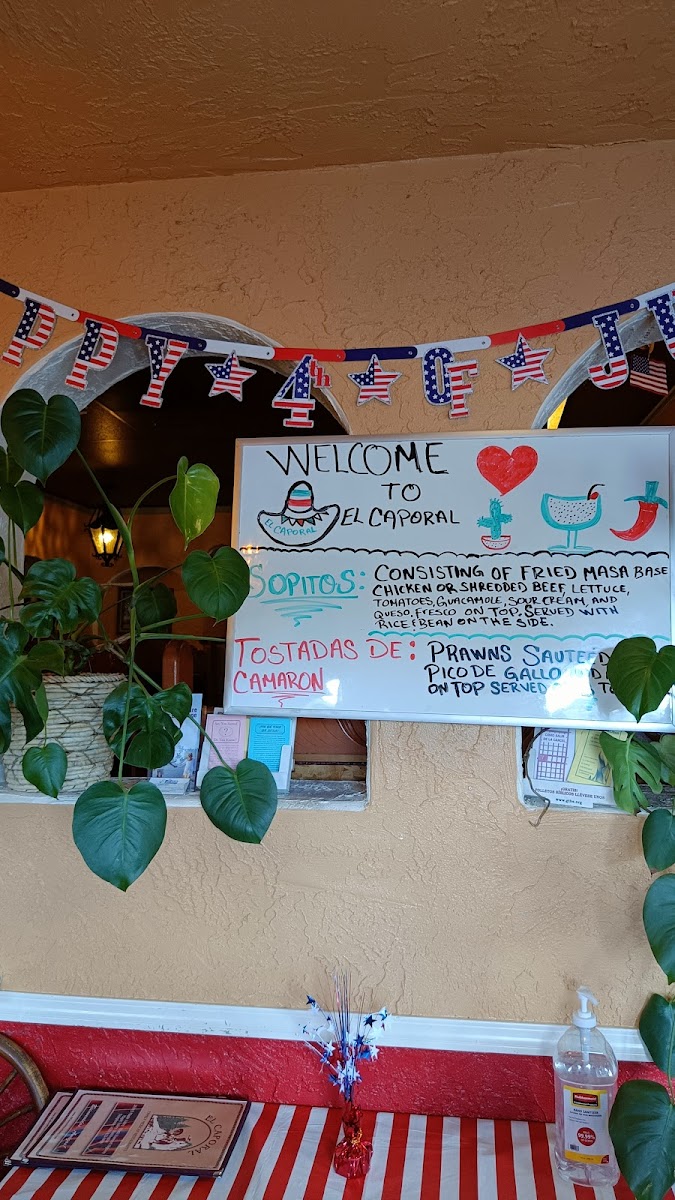 PPY 4th OF JU
WELCOME
TO
EL CAPORAL
EL CAPORAL
SOPITOS: CONSISTING OF FRIED MASA BASE
CHICKEN OR SHREDDED BEEF, LETTUCE,
TOMATOES, GUACAMOLE, SOUR CREAM, AND
QUESO, FRESCO ON TOP. SERVED WITH
RICE & BEAN ON THE SIDE.
TOSTADAS DE: PRAWNS SAUTEED
CAMARON
PICO DE GALLO
ON TOP SERVED
EL CAPORAL
99.99%